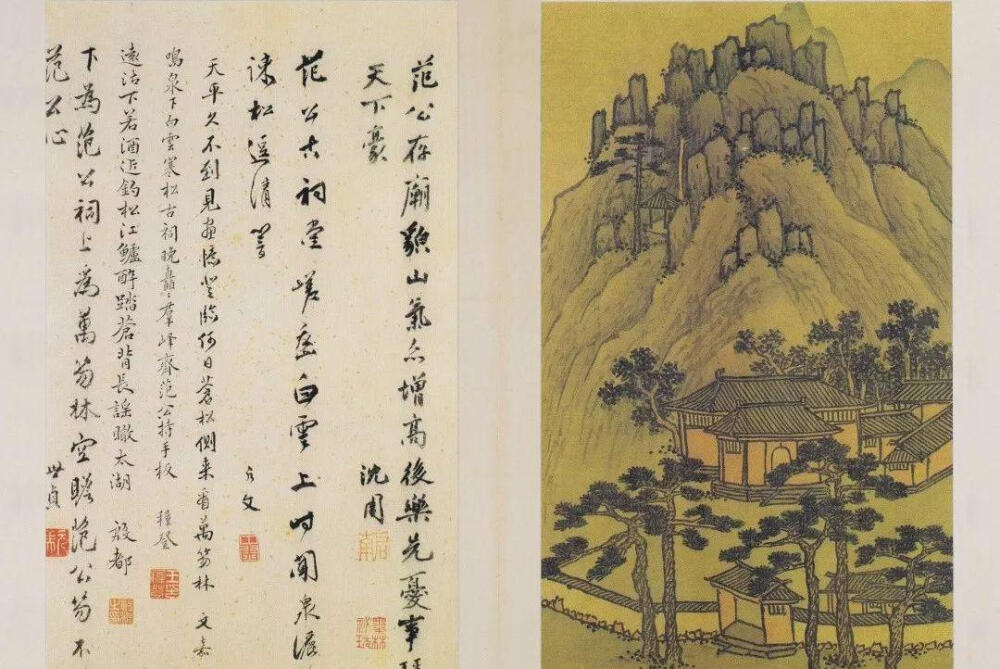 范公存廟貌山氣亦增高後樂先憂事
天下豪 沈周
范公古祠堂嵯峨白雲上時聞泉
疎松逗清響 文
天平久不到見畫憶登臨何日蒼松側來看萬笏林 文嘉
鳴泉下白雲寒松古祠晚矗矗羣峰齊范公持手板 穉登
遠沽下若酒近釣松江鱸醉踏蒼背長謡瞰太湖 殷都
下為范公祠上為萬笏林空瞻范公笏不
范公心 世貞